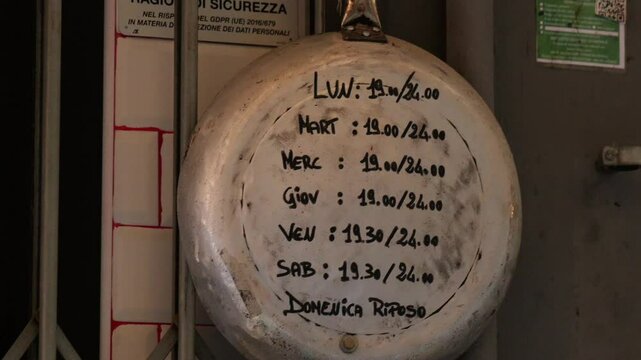 RAGIONI DI SICUREZZA
NEL RISP DEL GDPR (UE) 2016/679
IN MATERIA DI EZIONE DEI DATI PERSONALI
LUN: 19.00/24.00
MART : 19.00/24.00
MERC : 19.00/24.00
GIOV : 19.00/24.00
VEN : 19.30/24.00
SAB : 19.30/24.00
DOMENICA RIPOSO